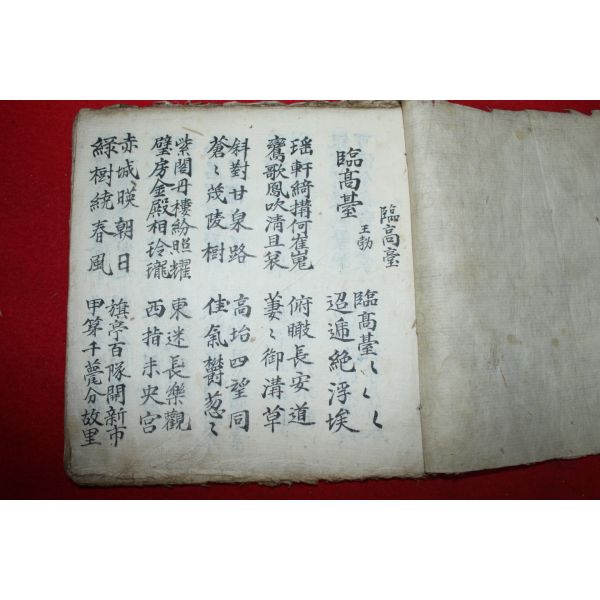 臨高臺
臨髙臺
王勃
臨髙臺〻〻〻
迢遞絶浮埃
瑶軒綺搆何崔嵬
鸞歌鳳吹清且哀
俯瞰長安道
萋〻御溝草
斜對甘泉路
蒼〻茂陵樹
高坮四望同
佳氣鬱葱〻
紫閣丹樓紛照耀
璧房金殿相玲瓏
東迷長樂觀
西指未央宮
赤城暎朝日
綠樹統春風
旗亭百隊開新市
甲第千甍分故里